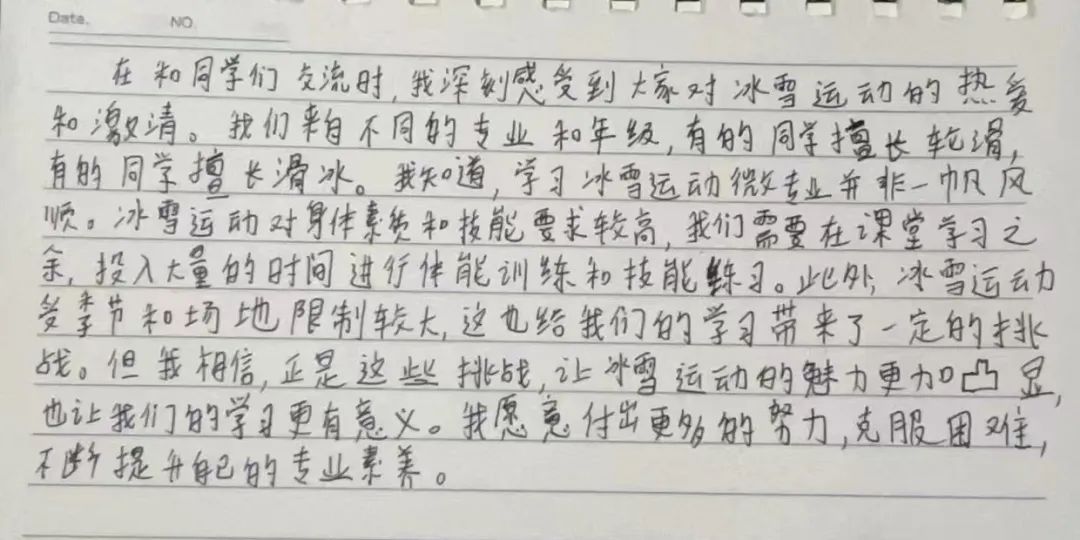 Date.
NO.
在和同学们交流时,我深刻感受到大家对冰雪运动的热爱
和激情。我们来自不同的专业和年级,有的同学擅长轮滑,
有的同学擅长滑冰。我知道,学习冰雪运动微专业并非一帆风
顺。冰雪运动对身体素质和技能要求较高,我们需要在课堂学习之
余,投入大量的时间进行体能训练和技能练习。此外,冰雪运动
受季节和场地限制较大,这也给我们的学习带来了一定的挑
战。但我相信,正是这些挑战,让冰雪运动的魅力更加凸显,
也让我们的学习更有意义。我愿意付出更多的努力,克服困难,
不断提升自己的专业素养。